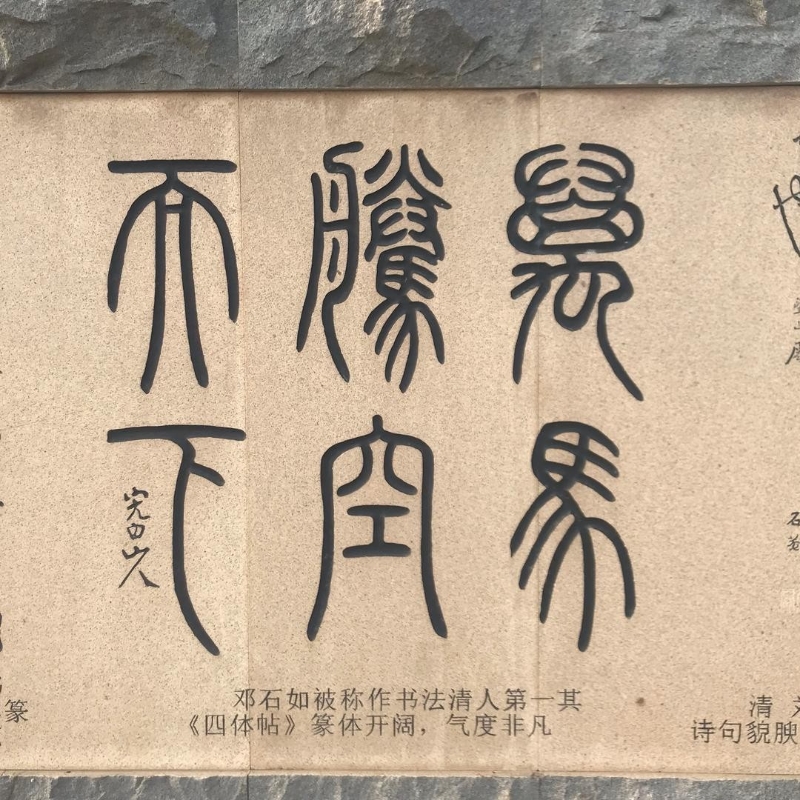 萬馬
騰空
而下
完白山人
邓石如被称作书法清人第一其
《四体帖》篆体开阔，气度非凡
清
诗句貌腴
篆